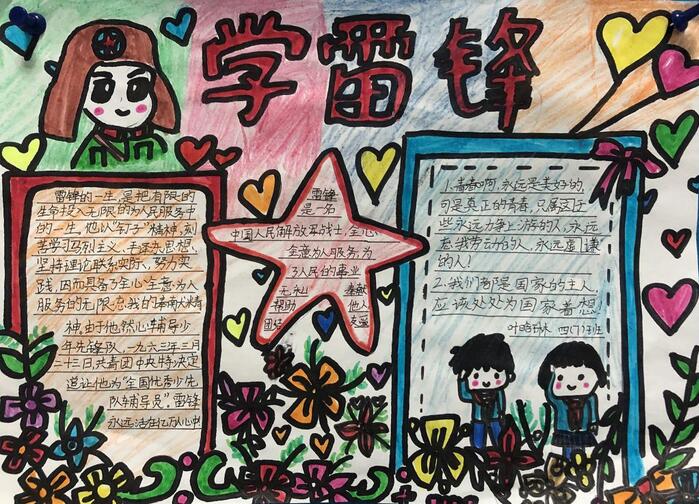 学雷锋
雷锋的一生,是把有限的
生命投入无限的为人民服务中
的一生,他以"钉子"精神,刻
苦学习马列主义、毛泽东思想,
坚持理论联系实际,努力实
践,因而具备了全心全意为人
服务的无限忘我的
神,由于他热心辅导少
年先锋队,一九六三年三月
二十三日,共青团中央特决定
追认他为"全国优秀少先
队辅导员",雷锋
永远活在亿万人心中
雷锋
是一名
中国人民解放军战士,全心
全意为人服务,为
了人民的事业
无私 奉献
帮助 他人
团结 友爱
1.青春啊,永远是美好的,
可是真正的青春,只属于这
些永远力争上游的人,永远
忘我劳动的人,永远虚谦
的人!
2.我们都是国家的主人,
应该处处为国家着想.
四(1)班